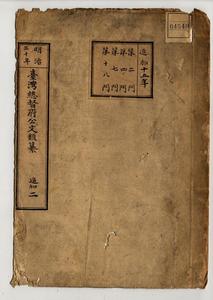 追加十五年
第二門
第四門
第七門
第十八門
明治三十年
臺灣總督府公文類纂
追加二